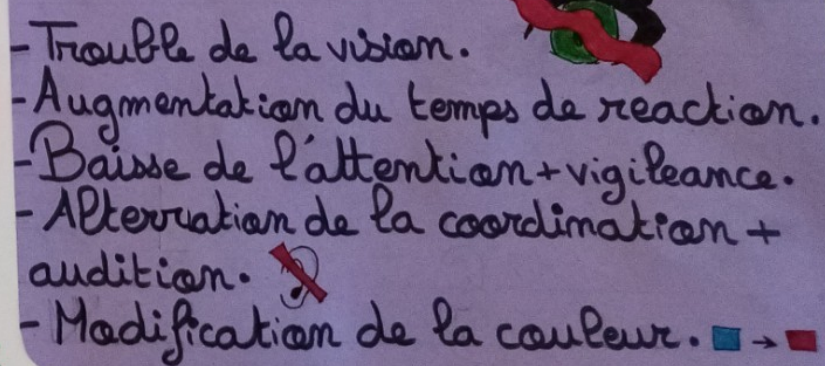 - Trouble de la vision.
- Augmentation du temps de reaction.
- Baisse de l'attention + vigileance.
- Alterration de la coordination +
audition.
- Modification de la couleur. →